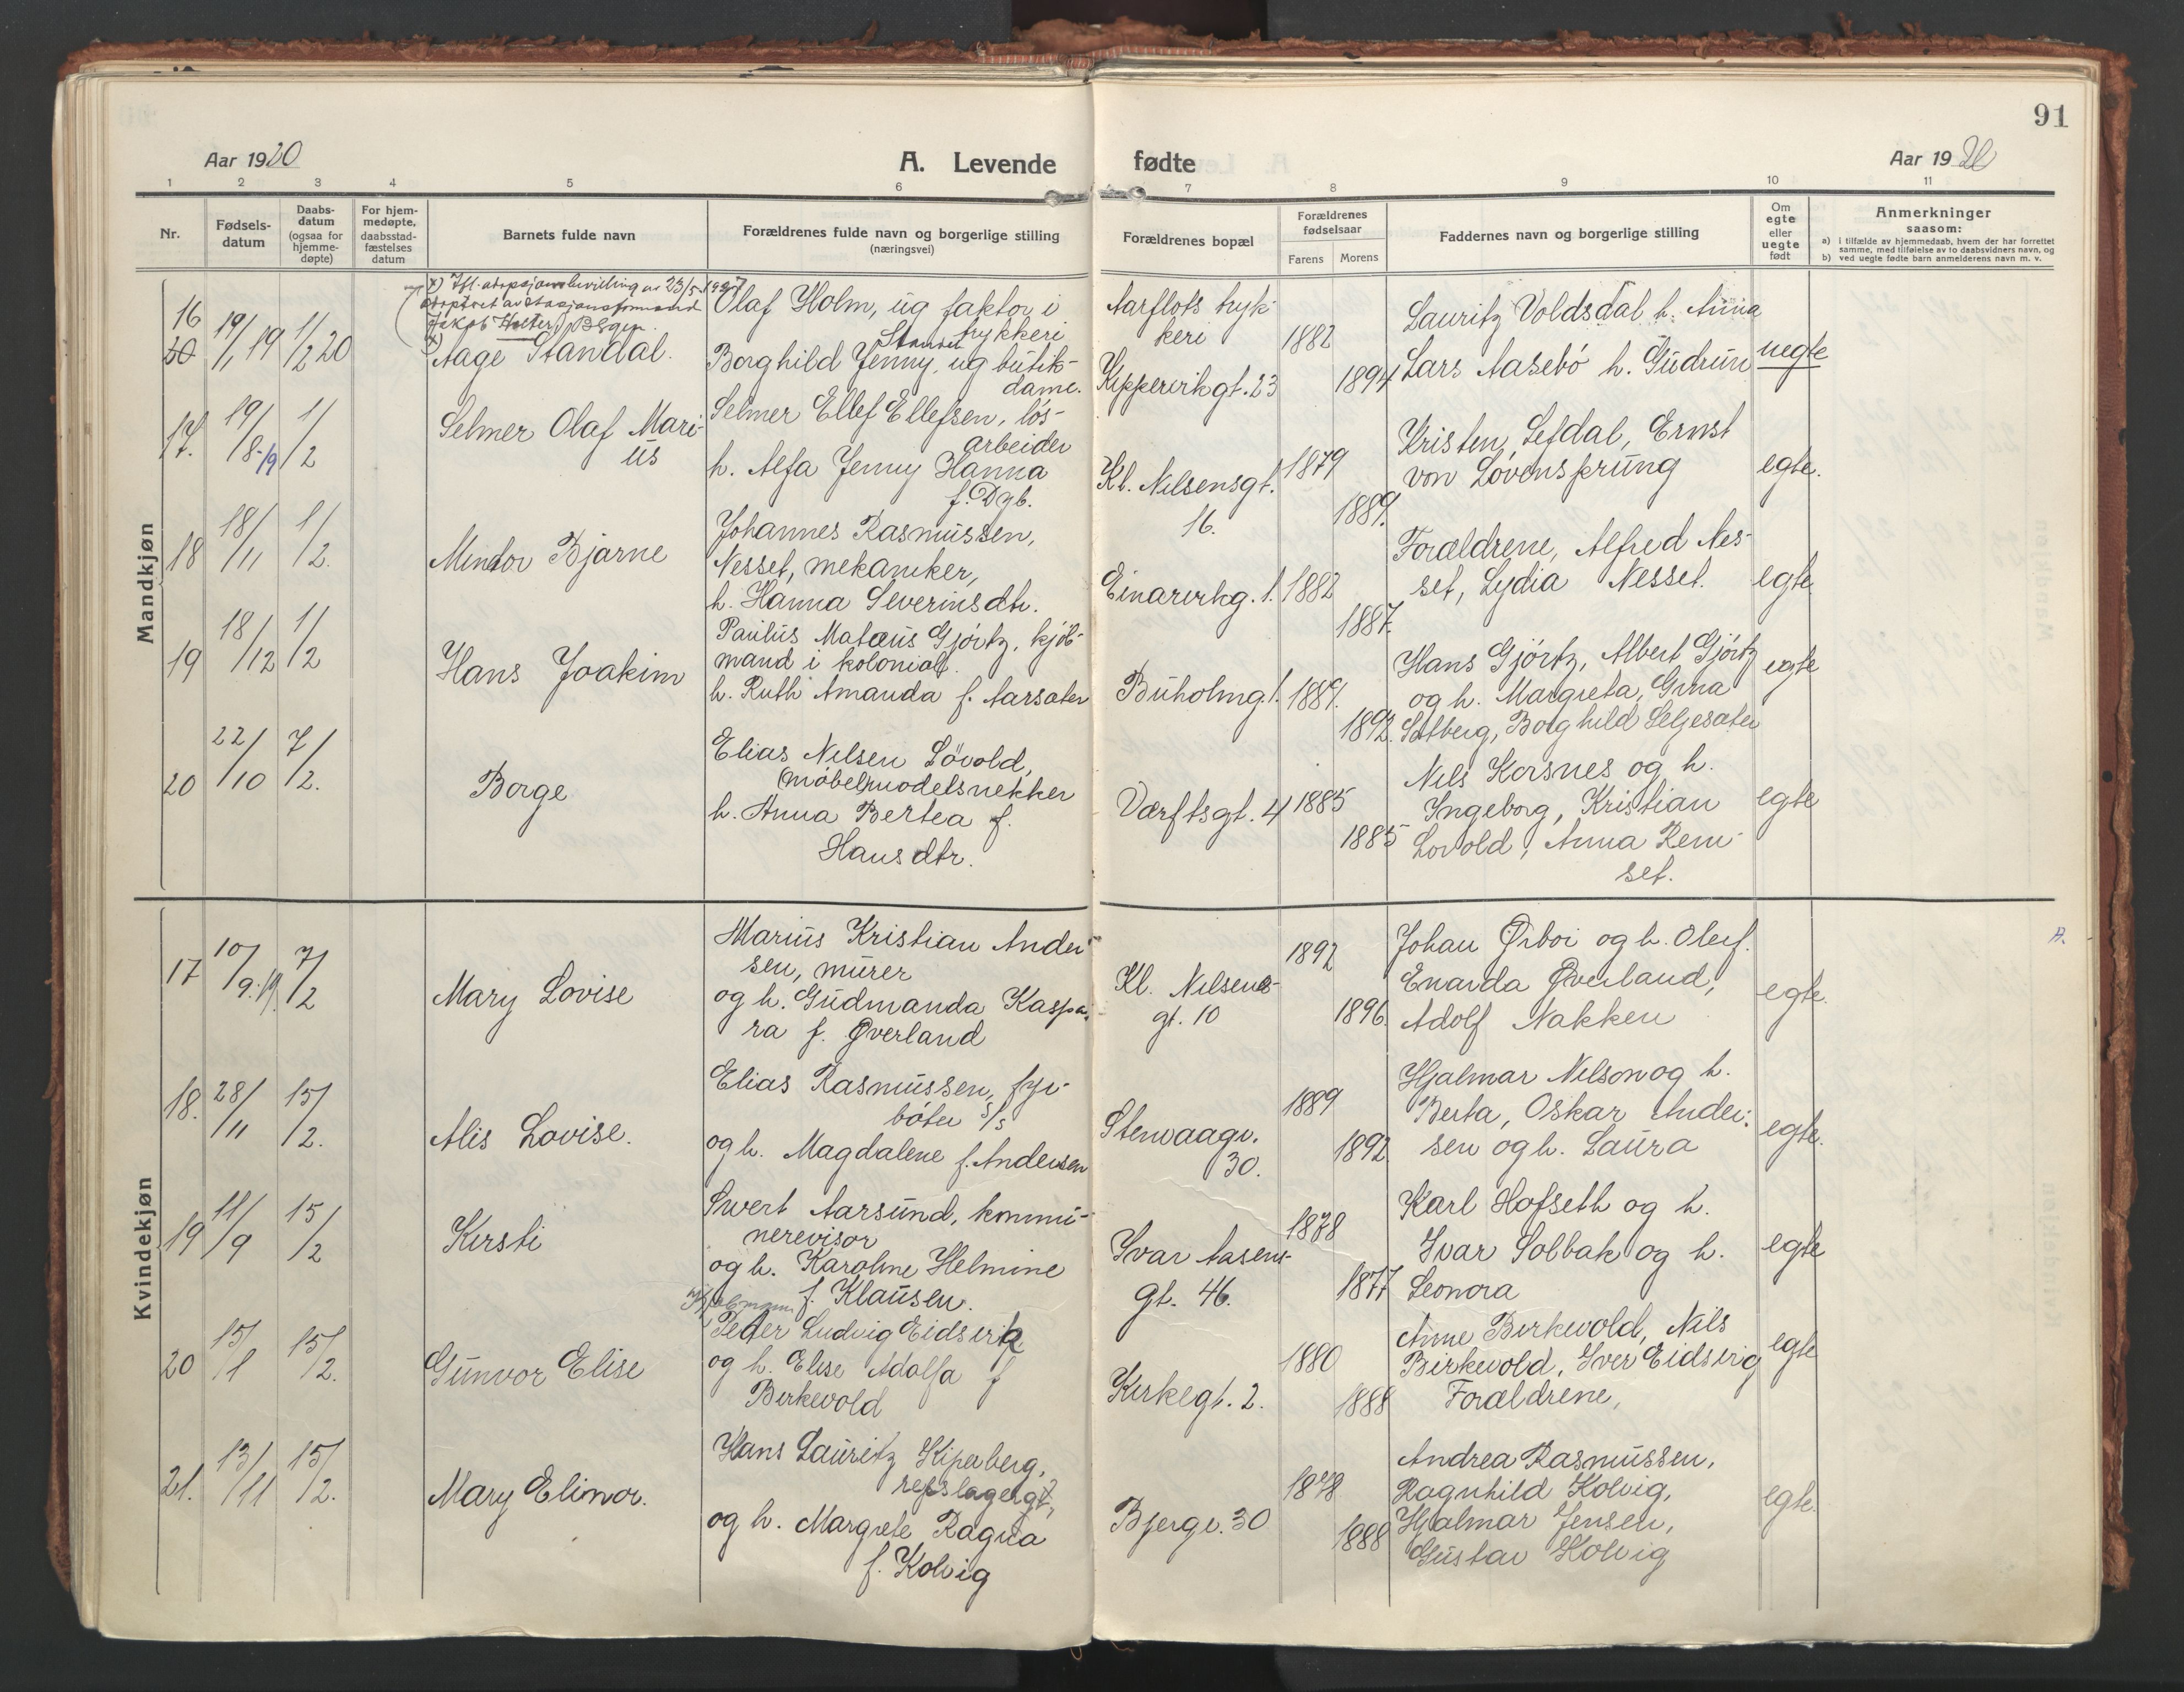 91
Aar 1920
A. Levende fødte
Aar 1920
1 2 3 4 5 6 7 8 9 10 11
Nr.
Fødsels-
datum
Daabs-
datum
(ogsaa for
hjemme-
døpte)
For hjem-
medøpte,
daabsstad-
fæstelses
datum
Barnets fulde navn
Forældrenes fulde navn og borgerlige stilling
(næringsvei)
Forældrenes bopæl
Forældrenes
fødselsaar
Farens Morens
Faddernes navn og borgerlige stilling
Om
egte
eller
uegte
født
Anmerkninger
saasom:
a) i tilfælde av hjemmedaab, hvem der har forrettet
samme, med tilføielse av to daabsvidners navn, og
b) ved uegte fødte barn anmelderens navn m. v.
Mandkjøn
x) Ifl. adopsjonsbevilling av 23/5 1927
adoptert av stasjonsformand
Jakob Holter, Bergen.
16
20
19/1 19
1/2 20
x) Aage Standal.
Olaf Holm, ug faktor i
trykkeri
Standal
Borghild Jenny, ug butik-
dame.
Aarflots tryk-
keri
Kippervikgt. 23
1882
1894
Lauritz Voldsdal h. Anna
Lars Aasebó h. Gudrun
uegte
17.
19/8-19
1/2
Selmer Olaf Mari-
us
Selmer Ellef Ellefsen, lós-
arbeider
h. Alfa Jenny Hanna
f. Dgb.
Kl. Nilsensgt.
16.
1879
1889.
Kristen Sefdal, Ernst
von Lóvensprung
egte.
18
18/11
1/2.
Mindor Bjarne
Johannes Rasmussen,
Nesset, mekaniker,
h. Hanna Severinsdtr.
Einarvikg. 1.
1882
1887.
Forældrene, Alfred Nes-
set, Lydia Nesset.
egte
19
18/12
1/2
Hans Joakim
Paulus Matæus Gjórtz, kjób-
mand i kolonial.
h. Ruth Amanda f. Aarsæter
Buholmg. 1.
1889.
1892.
Hans Gjórtz, Albert Gjórtz
og h. Margreta, Gina
Solberg, Borghild Seljesæter
egte
20
22/10
7/2.
Borge
Elias Nilsen Lóvold,
(móbel)modelsnekker
h. Anna Bertea f.
Hansdtr.
Værftsgt. 4
1885
1885
Nils Korsnes og h.
Ingeborg, Kristian
Lovold, Anna Rem-
set.
egte
Kvindekjøn
17
10/9.19.
7/2
Mary Lovise
Marius Kristian Ander-
sen, murer
og h. Gudmanda Kaspa-
ra f. Øverland
Kl. Nilsens-
gt. 10
1892
1896.
Johan Ørboi og h. Oluf.
Enarda Øverland,
Adolf Nakken
egte.
A.
18.
28/11
15/2.
Alis Lovise.
Elias Rasmussen, fyr-
bóter S/S
og h. Magdalene f. Andersen
Stenvaagv.
30.
1889
1892
Hjalmar Nilson og h.
Berta, Oskar Ander-
sen og h. Laura
egte.
19
11/9
15/2
Kirsti
Sivert Aarsund, kommu-
nerevisor
og h. Karoline Helmine
f. Klausen.
Ivar Aasens-
gt. 46.
1878
1877
Karl Hofseth og h.
Ivar Solbak og h.
Leonora
egte
20
15/1
15/2.
Gunvor Elise
Peder Ludvig Eidsvik
og h. Elise Adolfa f
Birkevold
Kirkegt. 2.
1880
1888
Anne Birkevold, Nils
Birkevold, Iver Eidsvig
Forældrene,
egte
21.
13/11
15/2.
Mary Elinor.
Hans Lauritz Kiperberg,
repslagergt,
og h. Margrete Ragna
f. Kolvig
Bjergv. 30
1878
1888
Andrea Rasmussen,
Ragnhild Kolvig,
Hjalmar Jensen,
Gustav Kolvig
egte.